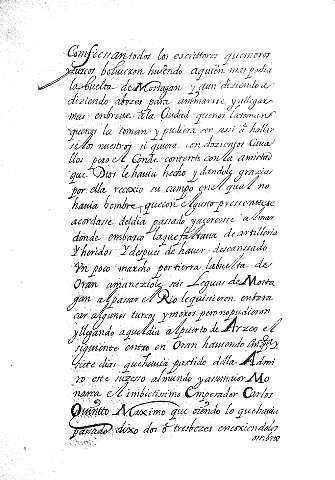 Confiessan todos los escrittores que moros
yturcos bolvieron huiendo aquien mas podia
la buelta de Mostagan y aun diziendo a
diziendo abozes para animarse y allegar
mas en breve a la Ciudad que nos la toman
quenos la toman y pudiera ser assi a hallar
se los nuestros si quiera con dozientos Cava
llos pero el Conde contento con la amistad
que Dios le havia hecho y dandole gracias
por ella recoxio su campo en el qual no
havia hombre que con el gusto presente se
acordasse del dia passado yazercosse al mar
donde embarco la que faltava de artilleria
Y heridos Y despues de haver descansado
Un poco marcho por tierra la buelta de
Oran amaneziole seis Leguas de Mosta
gan al passar el Rio le quisieron embara
car algunos turcos y moros pero no pudieron
y llegando aquel dia al puerto de Arzeo el
siguiente entro en Oran haviendo
siete dias que havia partido della Admi
ro este sucesso al mundo y a su maior Mo
narca el imbictissimo Emperador Carlos
Quintto Maximo que oiendo lo que havia
passado dixo dos o tres bezes encoxiendo los
ombros